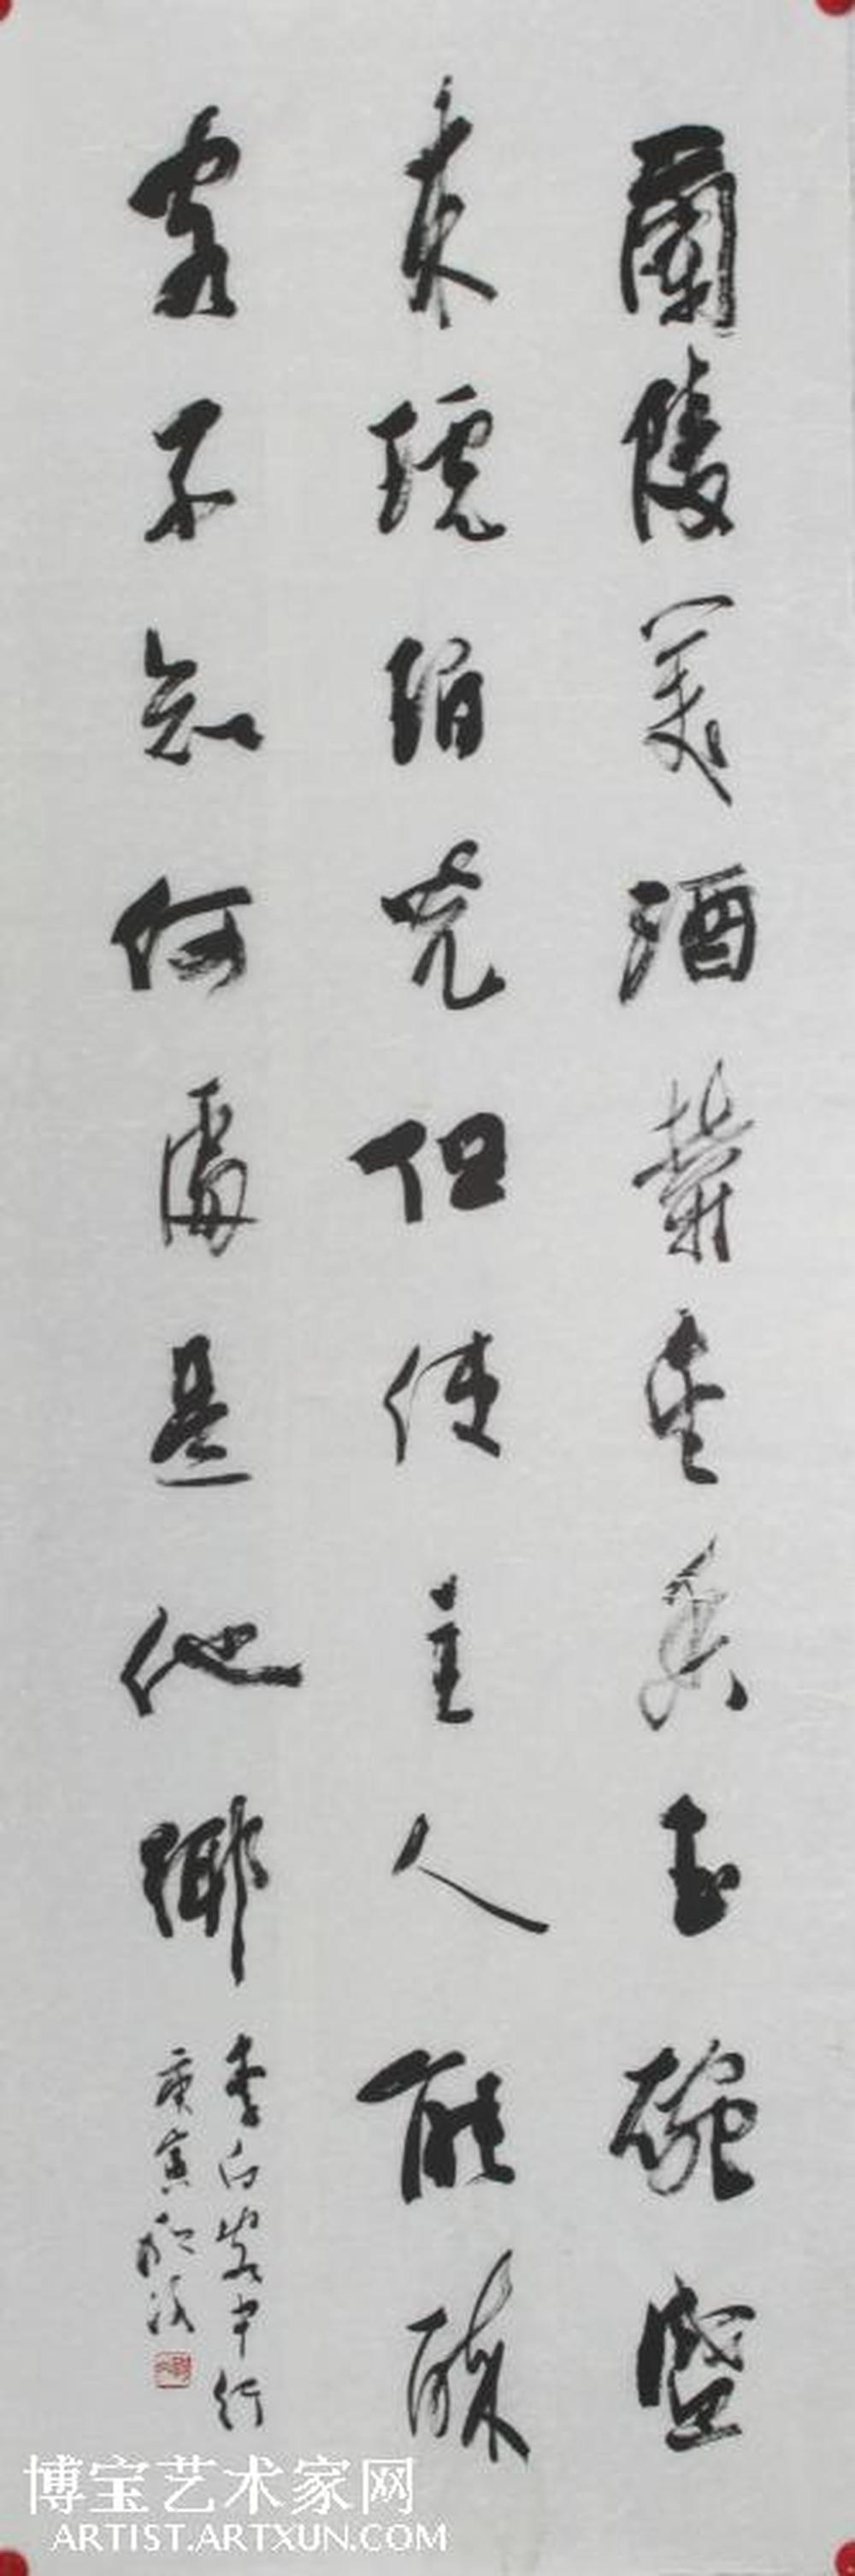 蘭陵美酒鬱金香玉碗盛
來琥珀光但使主人能醉
客不知何處是他鄉
李白客中行
庚寅
博宝艺术家网
ARTIST.ARTXUN.COM